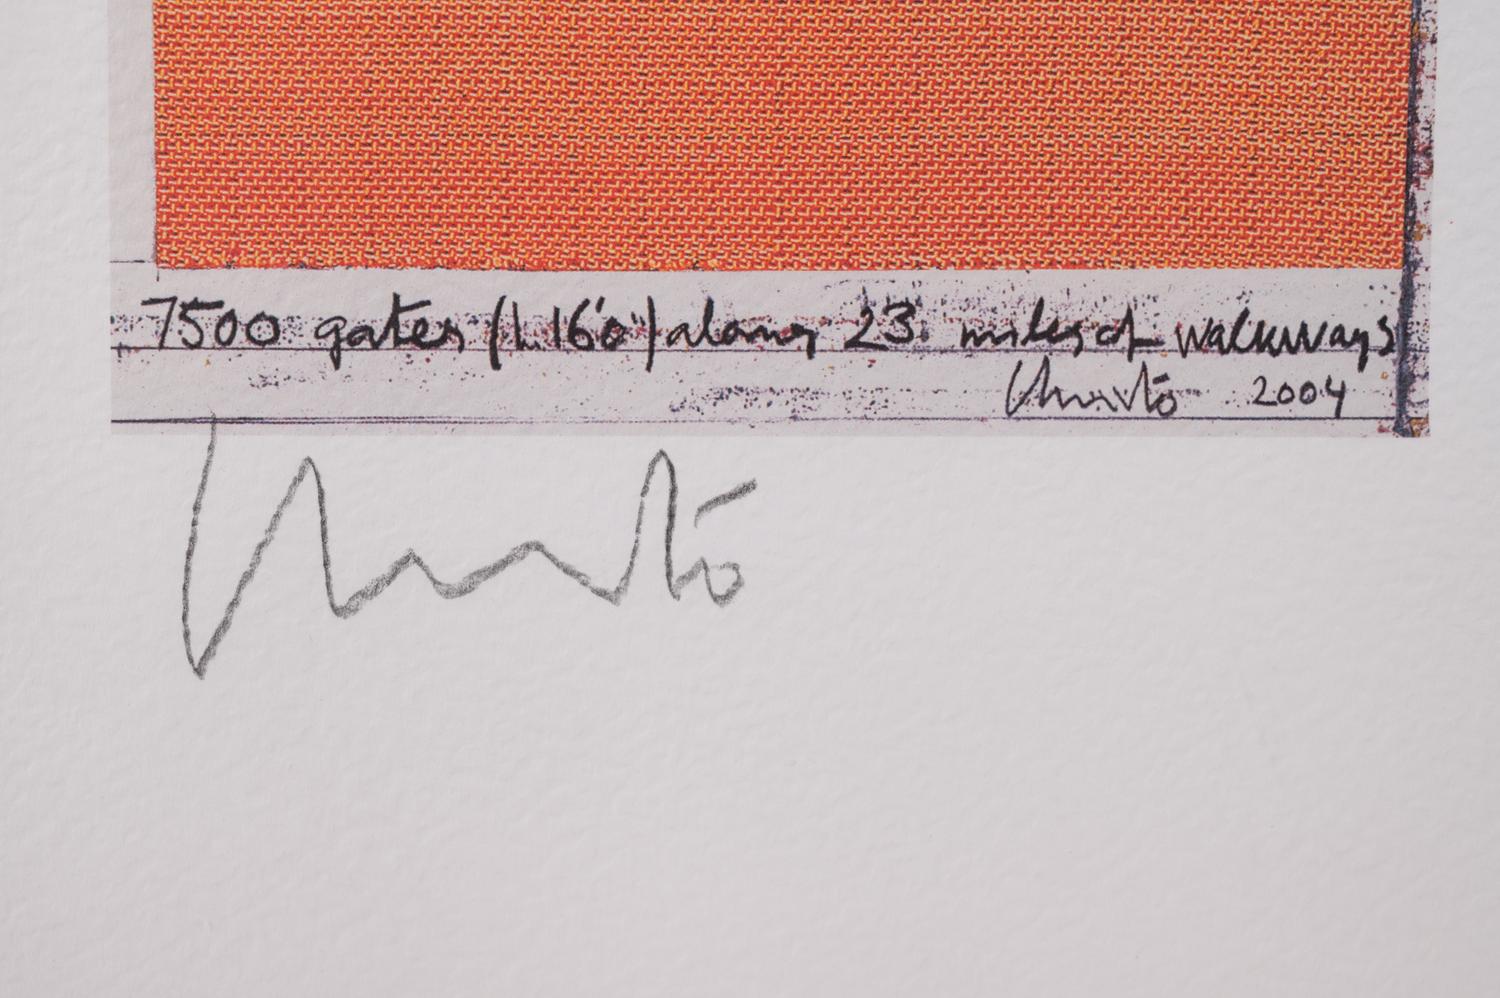 7500 gates (h. 16'0") along 23 miles of walkways
Christo 2004
Christo